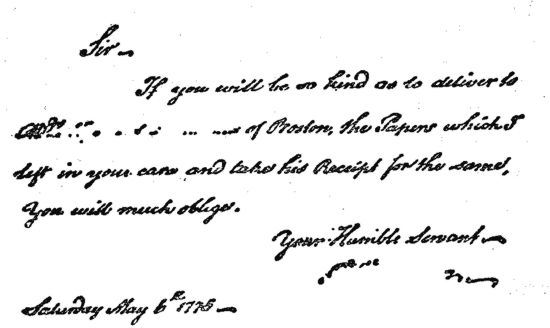 Sir
If you will be so kind as to deliver to
of Boston, the Papers which I
left in your care and take his Receipt for the same,
You will much oblige.
Your Humble Servant
Saturday May 6th 1775